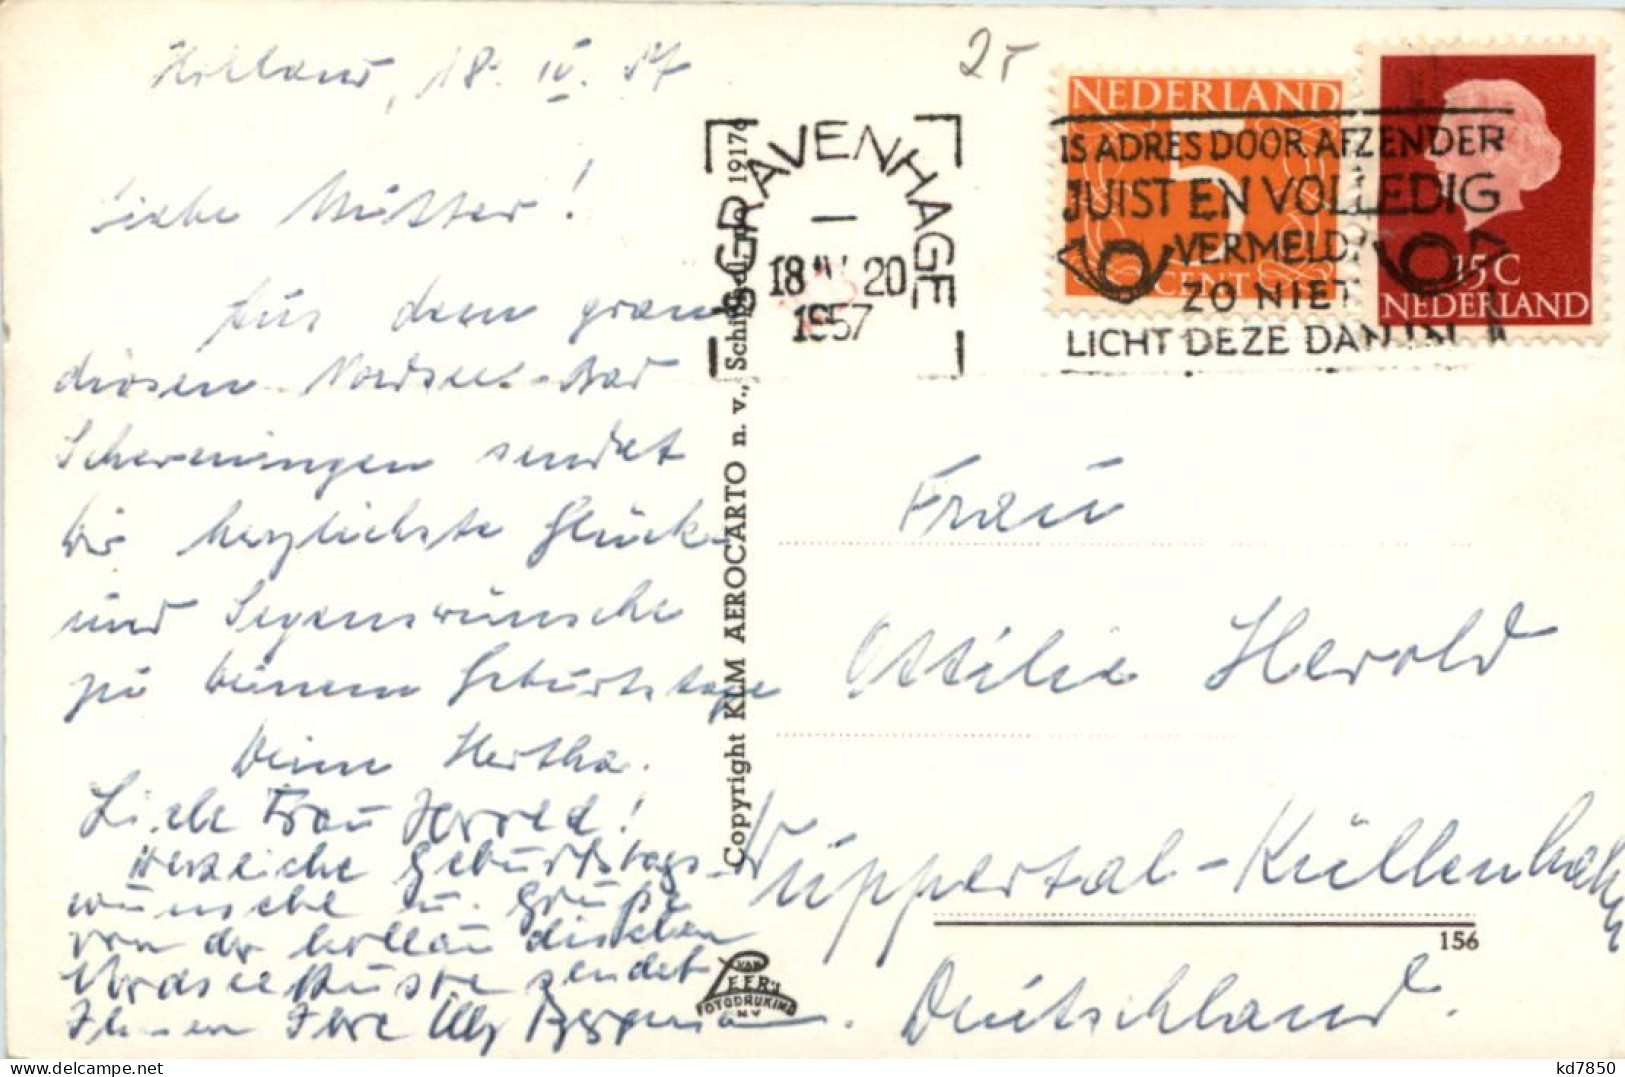 Holland, 18. IV. 57
Liebe Mutter!
Aus dem gran-
diosen Nordsee-Bad
Scheveningen sendet
Dir herzlichste Glück-
und Segenswünsche
zu Deinem Geburtstage
Deine Hertha.
Liebe Frau Herold!
Herzliche Geburtstags-
wünsche u. Grüße
von der holländischen
Nordseeküste sendet
Ihnen Ihre Elly Bergmann.
Copyright KLM AEROCARTO n. v., Schiphol, no 19176
2.-
'S GRAVENHAGE
18 IV 20
1957
NEDERLAND
5
CENT
15 C
NEDERLAND
IS ADRES DOOR AFZENDER
JUIST EN VOLLEDIG
VERMELD?
ZO NIET
LICHT DEZE DAN IN
Frau
Ottilie Herold
Wuppertal-Küllenhahn
156
Deutschland.
VAN
LEER'S
FOTODRUKIND
N.V.
kd7850